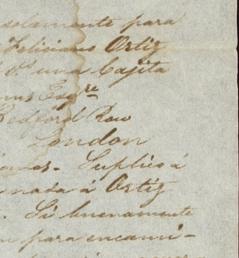 solamente para
Feliciano Ortiz
una Cajita
Esq.re
Bedford Row
London
Suplico á
á Ortiz
Si buenamente
para encami-